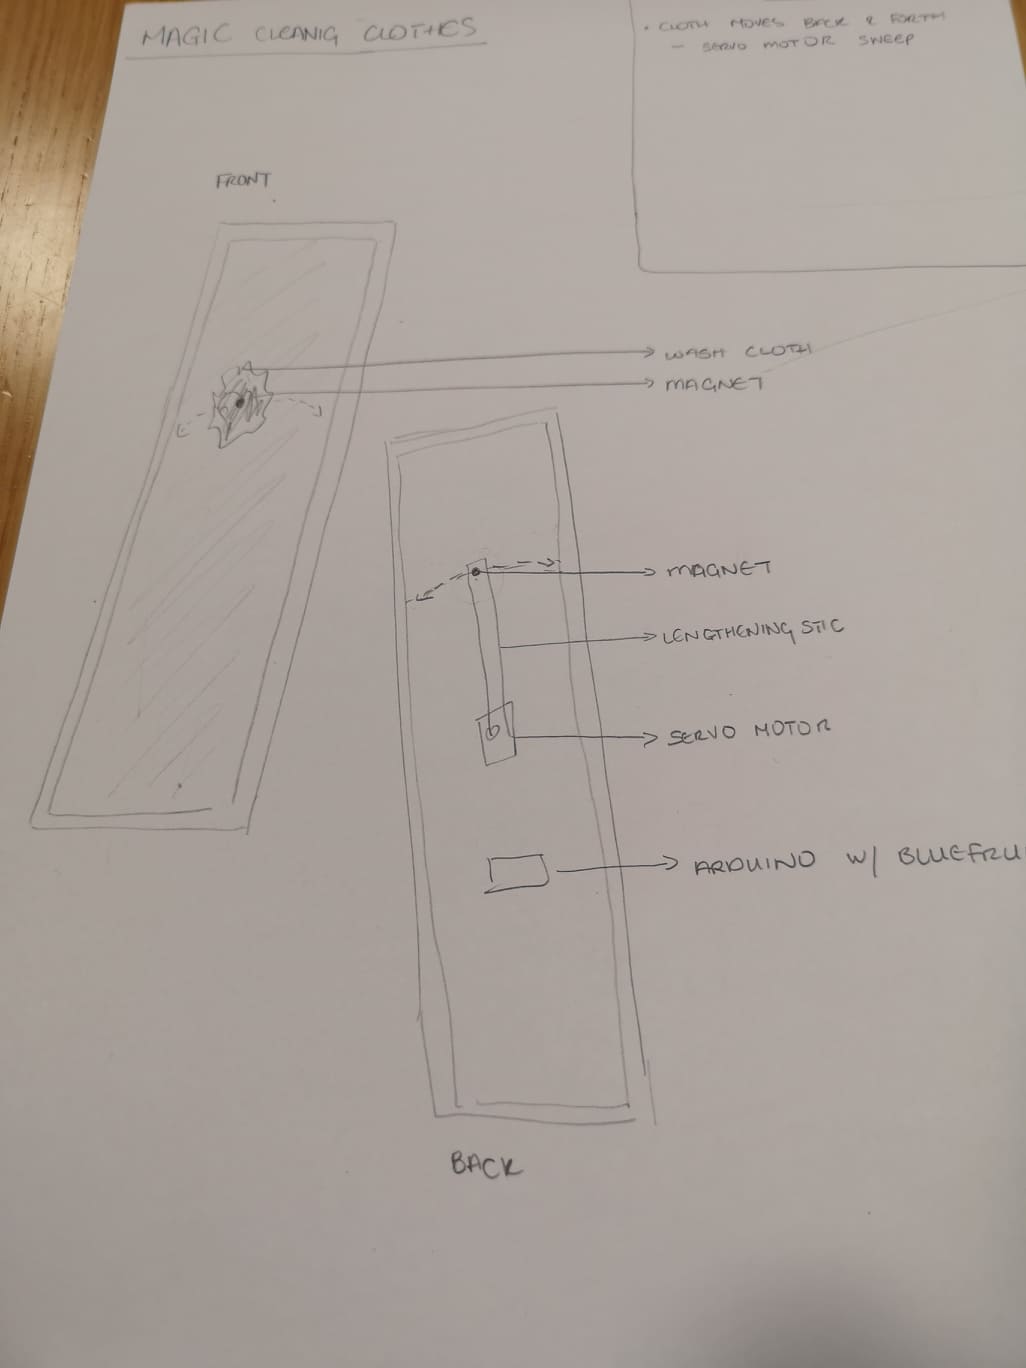 MAGIC CLEANIG CLOTHES
• CLOTH MOVES BACK & FORTH
- SERVO MOTOR SWEEP
FRONT
WASH CLOTH
MAGNET
MAGNET
LENGTHENING STIC
SERVO MOTOR
ARDUINO W/ BLUEFRU
BACK